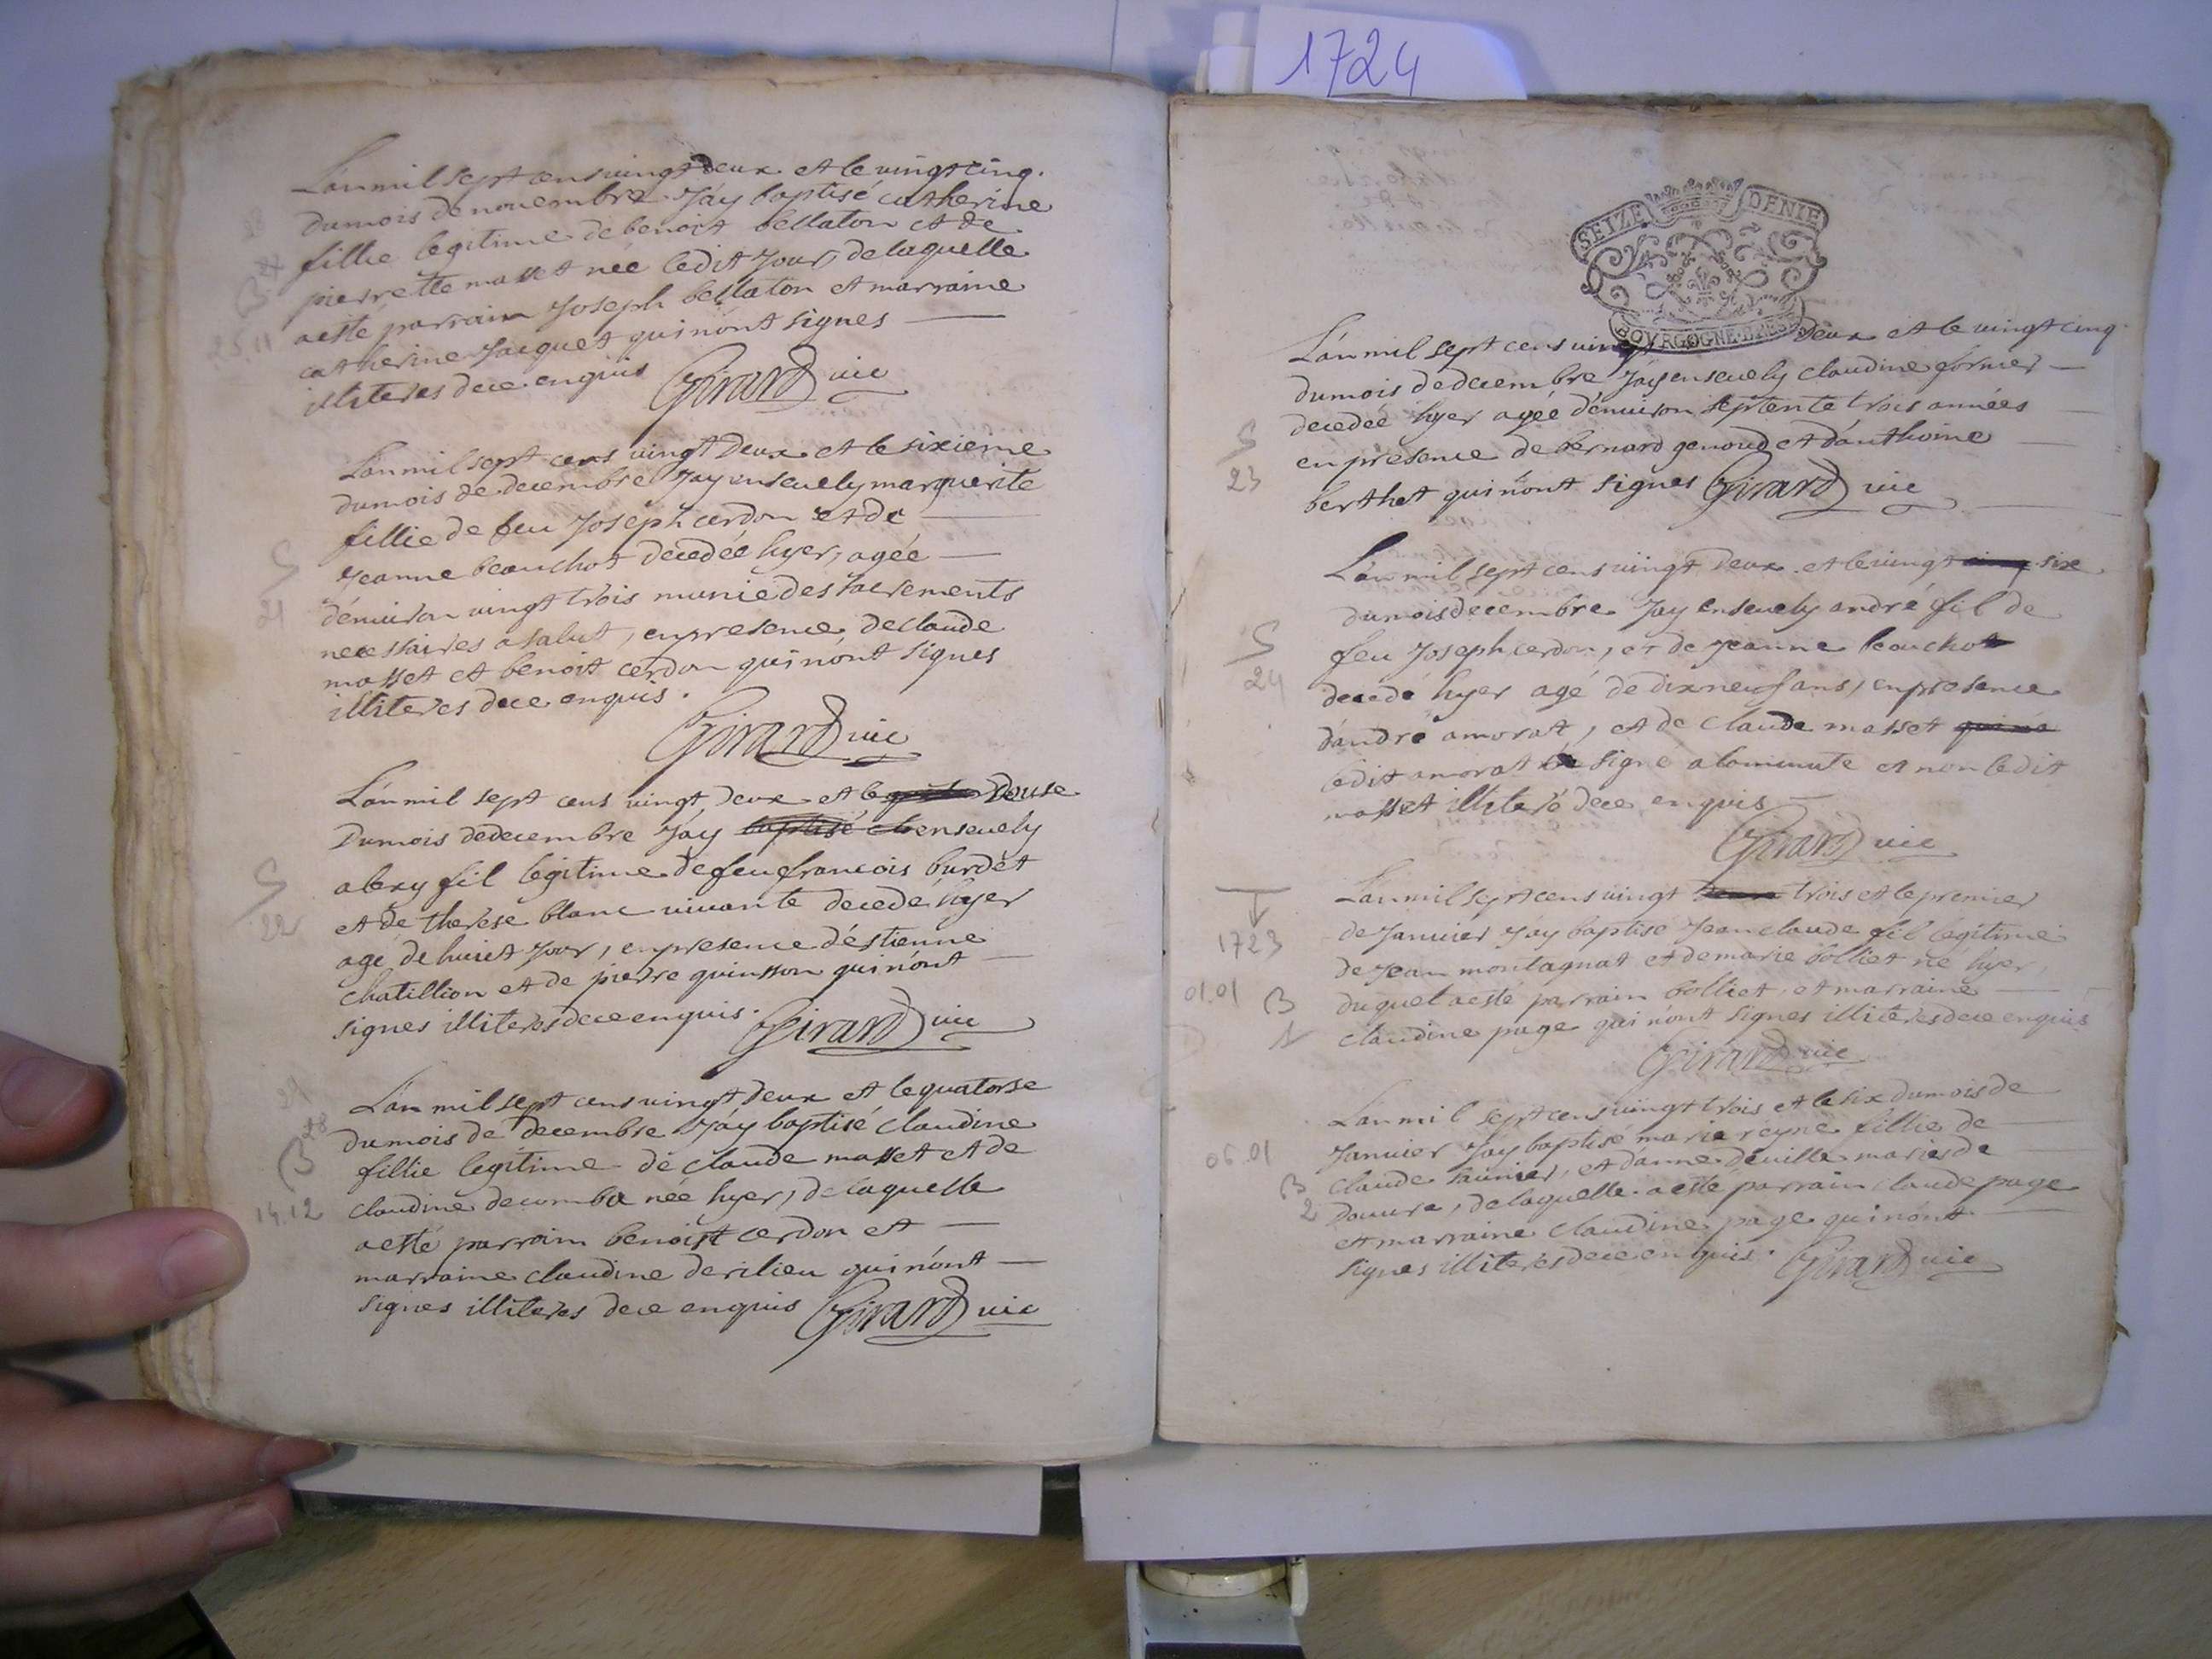 L'an mil sept cens vingt deux et le vingt cinq
du mois de novembre J'ay baptisé catherine
fillie legitime de benoit bellaton et de
pierrette masset née ledit Jour, de laquelle
a esté parrain Joseph bellaton et marraine
catherine Jacquet qui n'ont signes
illiteres de ce enquis Girard vic
25.11
L'an mil sept cens vingt deux et le sixieme
du mois de decembre J'ay ensevely marguerite
fillie de feu Joseph cerdon et de
Jeanne beauchot decedée hyer, agée
d'environ vingt trois munie des sacrements
necessaires a salut, en presence de claude
masset et benoit cerdon qui n'ont signes
illiteres de ce enquis.
Girard vic
S
21
L'an mil sept cens vingt deux et le douse
du mois de decembre J'ay baptisé ensevely
alexy fil legitime de feu francois burdet
et de therese blanc vivante decede hyer
agé de huict Jour, en presence d'estienne
chatillion et de pierre quinsson qui n'ont
signes illiteres de ce enquis.
Girard vic
S
22
L'an mil sept cens vingt deux et le quatorse
du mois de decembre J'ay baptisé claudine
fillie legitime de claude masset et de
claudine decombe née hyer, de laquelle
a esté parrain benoist cerdon et
marraine claudine derilieu qui n'ont
signes illiteres de ce enquis Girard vic
B
14.12
1724
SEIZE DENIE
BOURGOGNE
L'an mil sept cens vingt deux et le vingt cinq
du mois de decembre J'ay ensevely claudine fornier
decedée hyer agée d'environ septente trois années
en presence de bernard genoud et d'anthoine
berthet qui n'ont signes Girard vic
S
23
L'an mil sept cens vingt deux et le vingt cinq six
du mois decembre J'ay ensevely andré fil de
feu Joseph cerdon, et de Jeanne beauchot
decedé hyer agé de dix neuf ans, en presence
d'andré amorat, et de claude masset
ledit amorat signé a la minute et non ledit
masset illiteré de ce enquis
Girard vic
S
24
L'an mil sept cens vingt deux trois et le premier
de Janvier J'ay baptisé Jean claude fil légitime
de Jean montagnat et de marie bolliet né hyer,
duquel a esté parrain bolliet, et marraine
claudine page qui n'ont signes illiteres de ce enquis
Girard vic
1723
01.01 B
1
L'an mil sept cens vingt trois et le six du mois de
Janvier J'ay baptisé marie reyne fillie de
claude saunier, et d'anne deville maries de
Douvre, de laquelle a esté parrain claude page
et marraine claudine page qui n'ont
signes illiteres de ce enquis. Girard vic
06.01
B
2